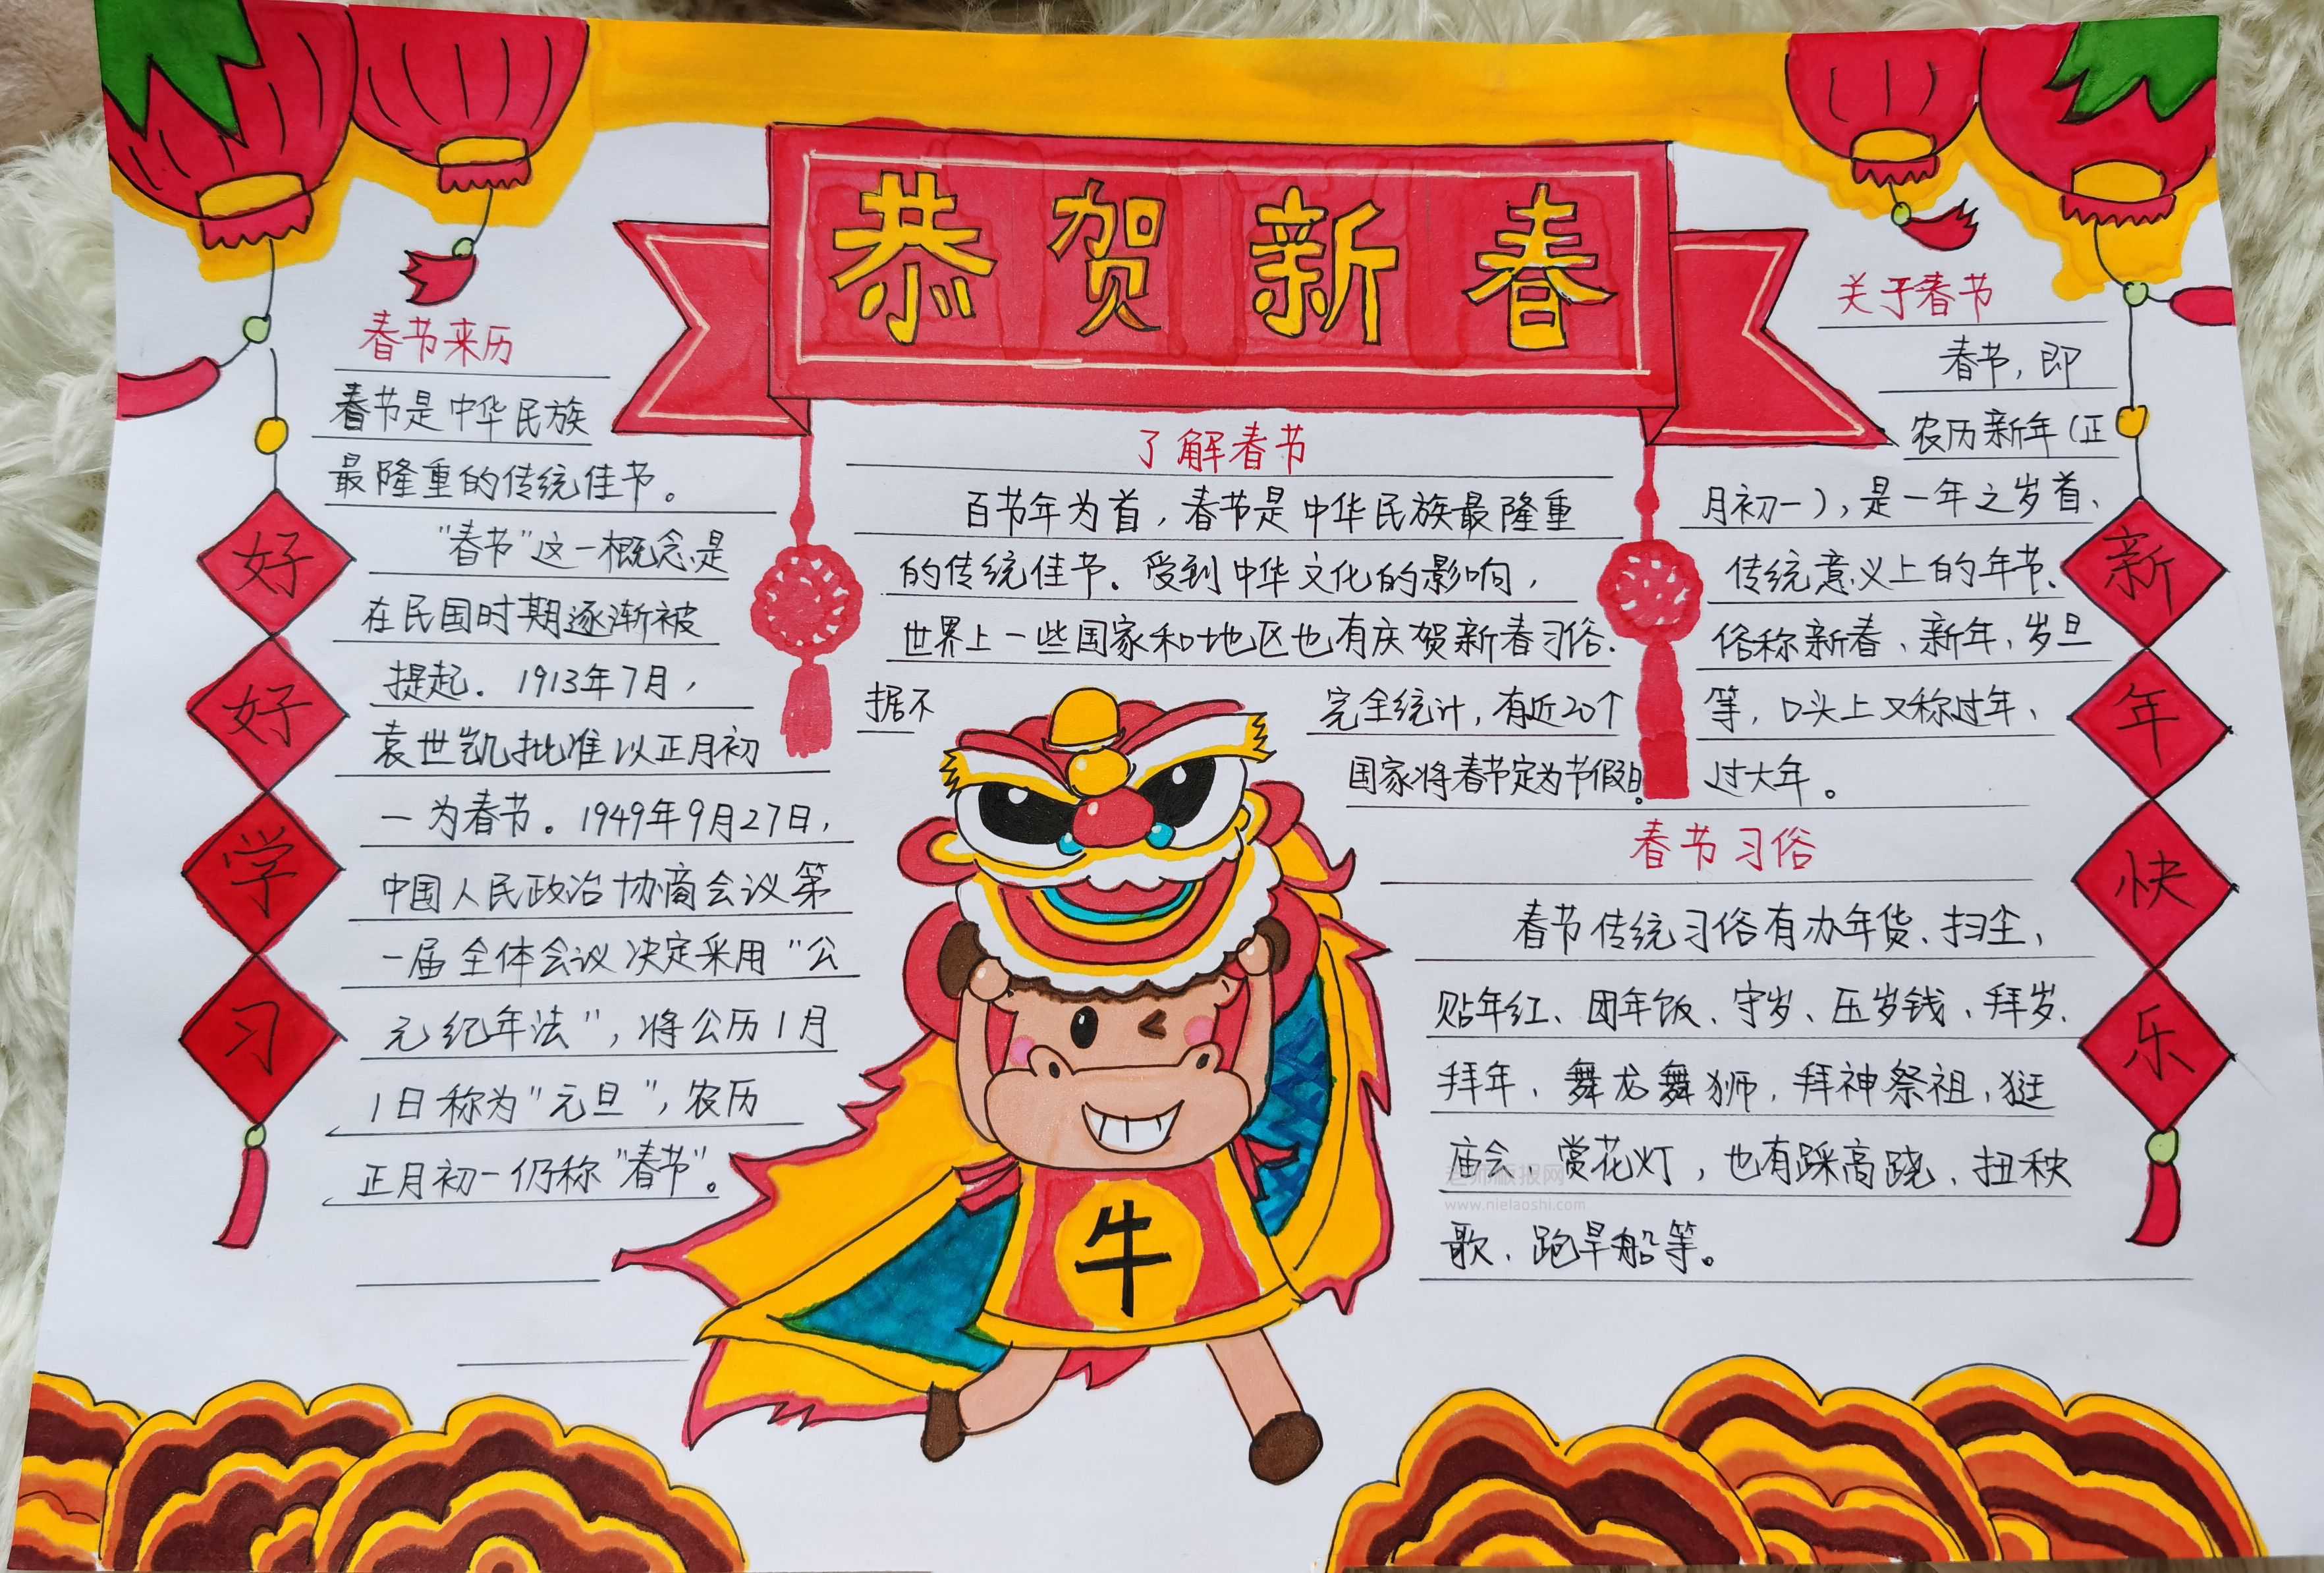 恭贺新春
春节来历
春节是中华民族
最隆重的传统佳节。
“春节”这一概念是
在民国时期逐渐被
提起. 1913年7月，
袁世凯批准以正月初
一为春节。1949年9月27日，
中国人民政治协商会议第
一届全体会议决定采用“公
元纪年法”，将公历1月
1日称为“元旦”，农历
正月初一仍称“春节”。
好
好
学
习
了解春节
百节年为首，春节是中华民族最隆重
的传统佳节. 受到中华文化的影响，
世界上一些国家和地区也有庆贺新春习俗.
据不
完全统计，有近20个
国家将春节定为节假日。
牛
关于春节
春节，即
农历新年（正
月初一），是一年之岁首、
传统意义上的年节、
俗称新春、新年、岁旦
等，口头上又称过年、
过大年。
春节习俗
春节传统习俗有办年货、扫尘、
贴年红、团年饭、守岁、压岁钱、拜岁、
拜年、舞龙舞狮，拜神祭祖，逛
庙会、赏花灯，也有踩高跷、扭秧
歌、跑旱船等。
新
年
快
乐
老师板报网
www.nielaoshi.com